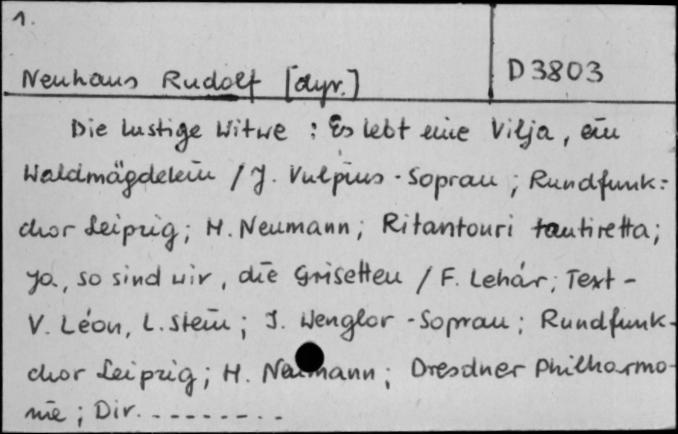 1.
Neuhaus Rudolf [dyr.]
D 3803
Die lustige Witwe : Es lebt eine Vilja, ein
Waldmägdelein / J. Vulpius - Sopran ; Rundfunk=
chor Leipzig ; H. Neumann ; Ritantouri tantiretta ;
Ja, so sind wir, die Grisetten / F. Lehár ; Text -
V. Léon, L. Stein ; I. Wenglor - Sopran ; Rundfunk-
chor Leipzig ; H. Neumann ; Dresdner Philharmo-
nie ; Dir. - - - - - - - - -